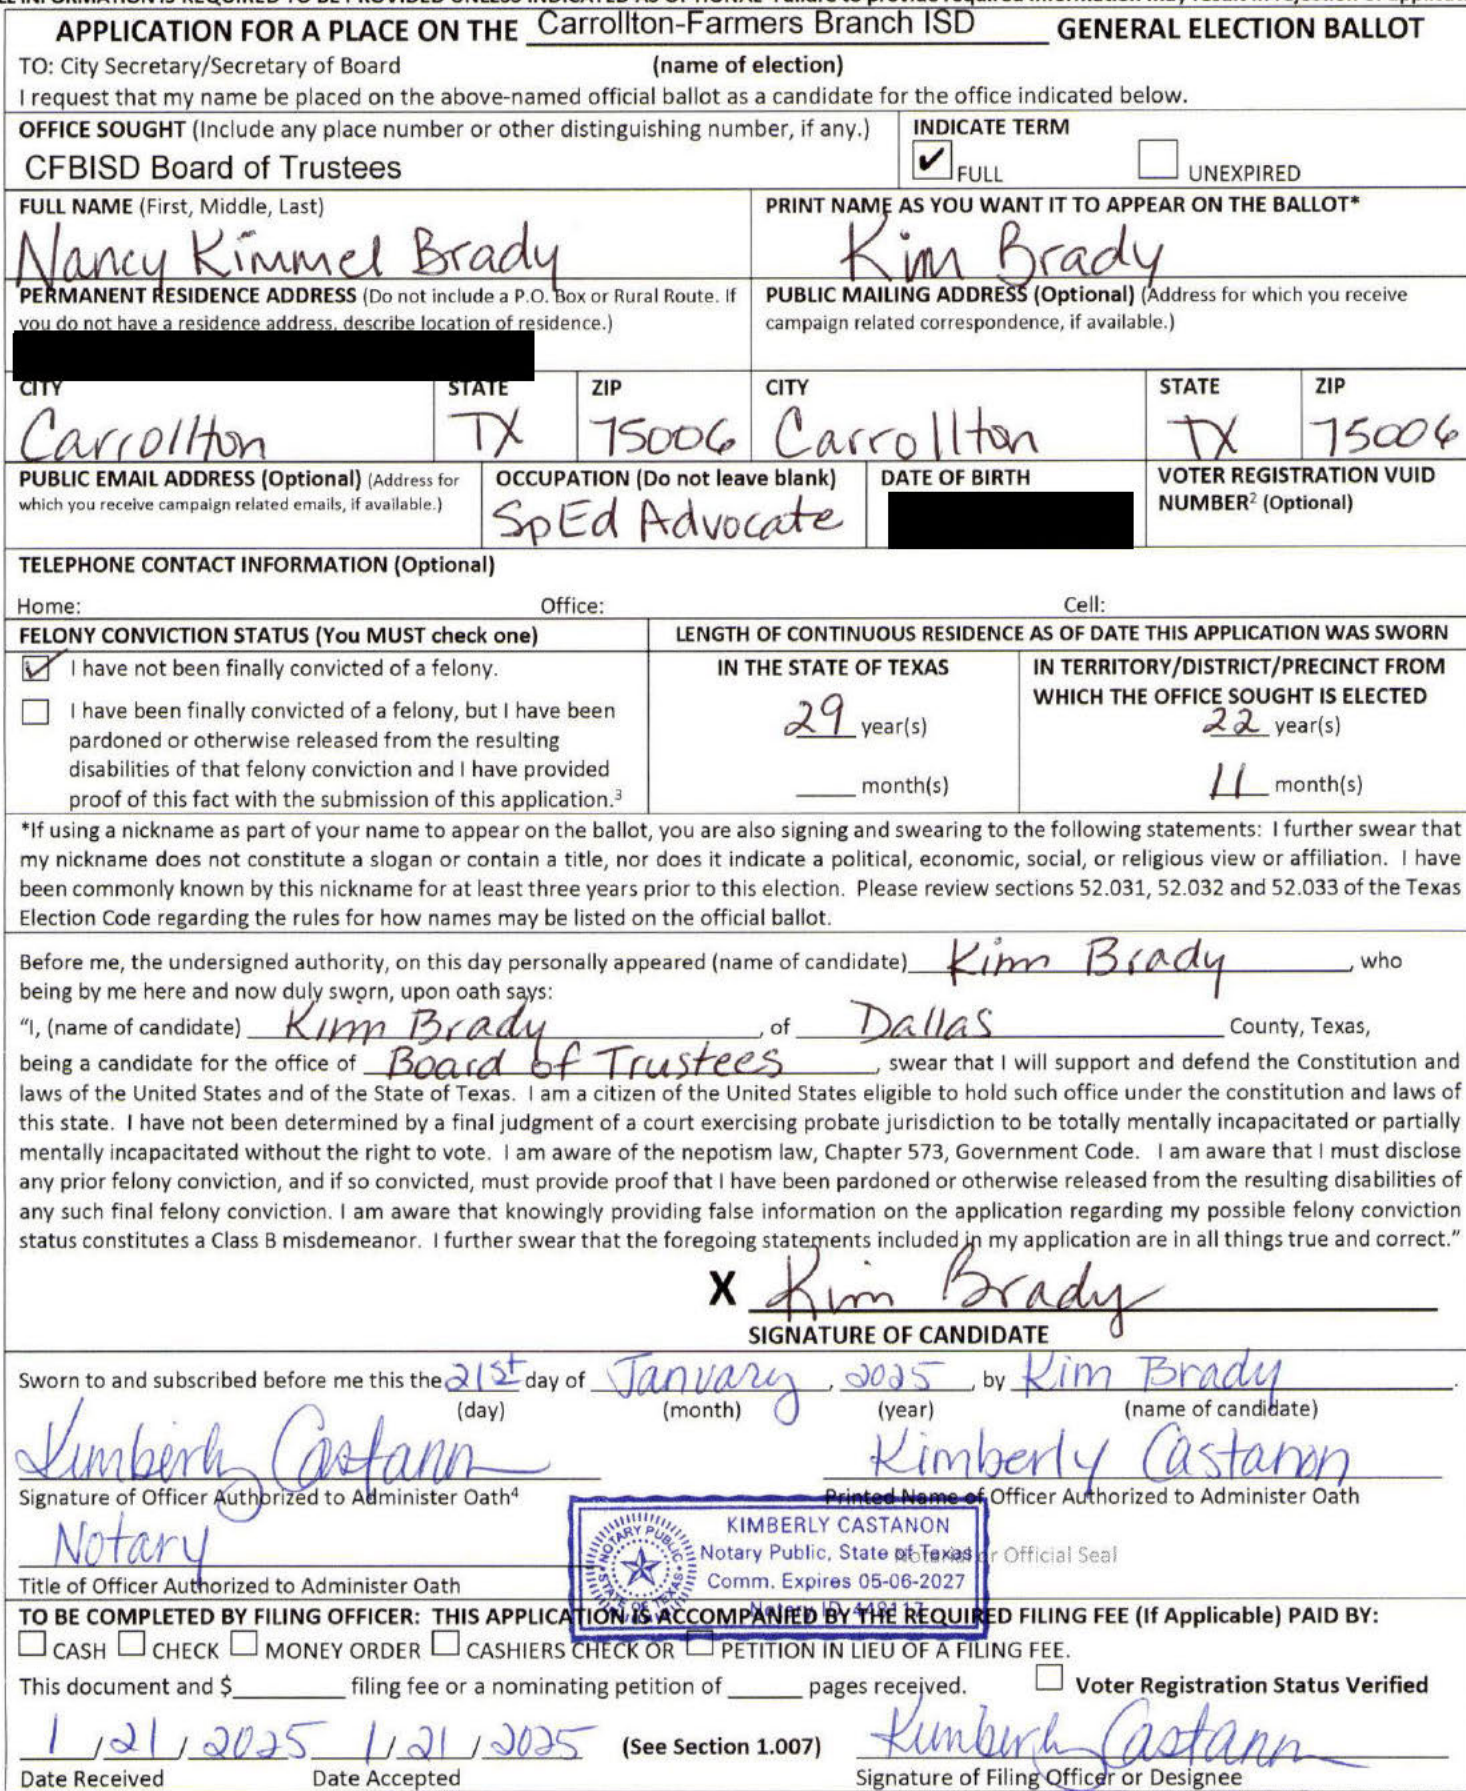 APPLICATION FOR A PLACE ON THE Carrollton-Farmers Branch ISD GENERAL ELECTION BALLOT
TO: City Secretary/Secretary of Board (name of election)
I request that my name be placed on the above-named official ballot as a candidate for the office indicated below.
OFFICE SOUGHT (Include any place number or other distinguishing number, if any.) INDICATE TERM
CFBISD Board of Trustees ✔ FULL UNEXPIRED
FULL NAME (First, Middle, Last) PRINT NAME AS YOU WANT IT TO APPEAR ON THE BALLOT*
Nancy Kimmel Brady Kim Brady
PERMANENT RESIDENCE ADDRESS (Do not include a P.O. Box or Rural Route. If PUBLIC MAILING ADDRESS (Optional) (Address for which you receive
you do not have a residence address, describe location of residence.) campaign related correspondence, if available.)
CITY STATE ZIP CITY STATE ZIP
Carrollton TX 75006 Carrollton TX 75006
PUBLIC EMAIL ADDRESS (Optional) (Address for OCCUPATION (Do not leave blank) DATE OF BIRTH VOTER REGISTRATION VUID
which you receive campaign related emails, if available.) SpEd Advocate NUMBER² (Optional)
TELEPHONE CONTACT INFORMATION (Optional)
Home: Office: Cell:
FELONY CONVICTION STATUS (You MUST check one) LENGTH OF CONTINUOUS RESIDENCE AS OF DATE THIS APPLICATION WAS SWORN
✓ I have not been finally convicted of a felony. IN THE STATE OF TEXAS IN TERRITORY/DISTRICT/PRECINCT FROM
WHICH THE OFFICE SOUGHT IS ELECTED
I have been finally convicted of a felony, but I have been 29 year(s) 22 year(s)
pardoned or otherwise released from the resulting
disabilities of that felony conviction and I have provided month(s) 11 month(s)
proof of this fact with the submission of this application.³
*If using a nickname as part of your name to appear on the ballot, you are also signing and swearing to the following statements: I further swear that
my nickname does not constitute a slogan or contain a title, nor does it indicate a political, economic, social, or religious view or affiliation. I have
been commonly known by this nickname for at least three years prior to this election. Please review sections 52.031, 52.032 and 52.033 of the Texas
Election Code regarding the rules for how names may be listed on the official ballot.
Before me, the undersigned authority, on this day personally appeared (name of candidate) Kim Brady, who
being by me here and now duly sworn, upon oath says:
"I, (name of candidate) Kim Brady, of Dallas County, Texas,
being a candidate for the office of Board of Trustees, swear that I will support and defend the Constitution and
laws of the United States and of the State of Texas. I am a citizen of the United States eligible to hold such office under the constitution and laws of
this state. I have not been determined by a final judgment of a court exercising probate jurisdiction to be totally mentally incapacitated or partially
mentally incapacitated without the right to vote. I am aware of the nepotism law, Chapter 573, Government Code. I am aware that I must disclose
any prior felony conviction, and if so convicted, must provide proof that I have been pardoned or otherwise released from the resulting disabilities of
any such final felony conviction. I am aware that knowingly providing false information on the application regarding my possible felony conviction
status constitutes a Class B misdemeanor. I further swear that the foregoing statements included in my application are in all things true and correct."
X Kim Brady
SIGNATURE OF CANDIDATE
Sworn to and subscribed before me this the 21st day of January, 2025, by Kim Brady.
(day) (month) (year) (name of candidate)
Kimberly Castanon Kimberly Castanon
Signature of Officer Authorized to Administer Oath⁴ Printed Name of Officer Authorized to Administer Oath
Notary
KIMBERLY CASTANON
Notary Public, State of Texas
Comm. Expires 05-06-2027
NOTARY PUBLIC STATE OF TEXAS
or Official Seal
Title of Officer Authorized to Administer Oath
TO BE COMPLETED BY FILING OFFICER: THIS APPLICATION IS ACCOMPANIED BY THE REQUIRED FILING FEE (If Applicable) PAID BY:
CASH CHECK MONEY ORDER CASHIERS CHECK OR PETITION IN LIEU OF A FILING FEE.
This document and $ filing fee or a nominating petition of pages received. Voter Registration Status Verified
1/21/2025 1/21/2025 (See Section 1.007) Kimberly Castanon
Date Received Date Accepted Signature of Filing Officer or Designee